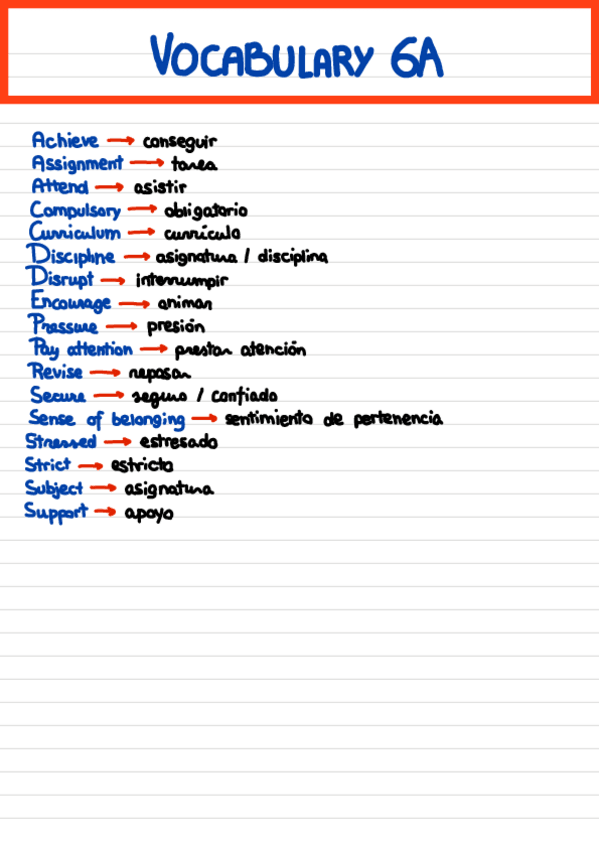 VOCABULARY 6A
Achieve → conseguir
Assignment → tarea
Attend → asistir
Compulsory → obligatorio
Curriculum → currículo
Discipline → asignatura / disciplina
Disrupt → interrumpir
Encourage → animar
Pressure → presión
Pay attention → prestar atención
Revise → repasar
Secure → seguro / confiado
Sense of belonging → sentimiento de pertenencia
Stressed → estresado
Strict → estricto
Subject → asignatura
Support → apoyo